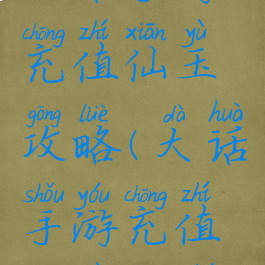 chōng zhí xiān yù
充值仙玉
gōng lüè dà huà
攻略(大话
shǒu yóu chōng zhí
手游充值